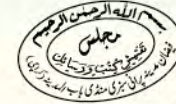 بسم اللہ الرحمن الرحیم
مجلس
تفتیش کتب و رسائل
فیضان مدینہ پرانی سبزی منڈی باب المدینہ کراچی